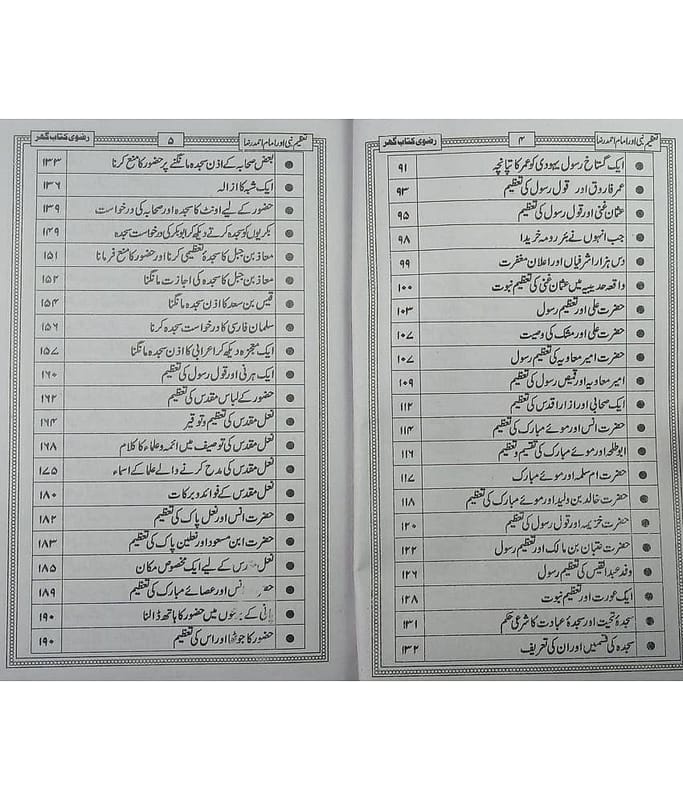 تعظیم نبی اور امام احمد رضا ۴ رضوی کتاب گھر
ایک گستاخ رسول یہودی کو عمر کا تپانچہ ۹۱
عمر فاروق اور قول رسول کی تعظیم ۹۳
عثمان غنی اور قول رسول کی تعظیم ۹۵
جب انہوں نے بئر رومہ خریدا ۹۸
دس ہزار اشرفیاں اور اعلان مغفرت ۹۹
واقعہ حدیبیہ میں عثمان غنی کی تعظیم نبوت ۱۰۰
حضرت علی اور تعظیم رسول ۱۰۳
حضرت علی اور مشک کی وصیت ۱۰۷
حضرت امیر معاویہ کی تعظیم رسول ۱۰۷
امیر معاویہ اور قمیص رسول کی تعظیم ۱۰۹
ایک صحابی اور ازار اقدس کی تعظیم ۱۱۲
حضرت انس اور موئے مبارک کی تعظیم ۱۱۴
ابوطلحہ اور موئے مبارک کی تقسیم و تعظیم ۱۱۶
حضرت ام سلمہ اور موئے مبارک ۱۱۷
حضرت خالد بن ولید اور موئے مبارک کی تعظیم ۱۱۸
حضرت خزیمہ اور قول رسول کی تعظیم ۱۲۰
حضرت عتبان بن مالک اور تعظیم رسول ۱۲۲
وفد عبدالقیس کی تعظیم رسول ۱۲۶
ایک عورت اور تعظیم نبوت ۱۲۸
سجدۂ تحیت اور سجدۂ عبادت کا شرعی حکم ۱۳۱
سجدہ کی قسمیں اور ان کی تعریف ۱۳۲
تعظیم نبی اور امام احمد رضا ۵ رضوی کتاب گھر
بعض صحابہ کے اذن سجدہ مانگنے پر حضور کا منع کرنا ۱۳۳
ایک شبہ کا ازالہ ۱۳۶
حضور کے لیے اونٹ کا سجدہ اور صحابہ کی درخواست ۱۳۹
بکریوں کو سجدہ کرتے دیکھ کر ابوبکر کی درخواست سجدہ ۱۴۹
معاذ بن جبل کا سجدۂ تعظیمی کرنا اور حضور کا منع فرمانا ۱۵۱
معاذ بن جبل کا سجدہ کی اجازت مانگنا ۱۵۲
قیس بن سعد کا اذن سجدہ مانگنا ۱۵۴
سلمان فارسی کا درخواست سجدہ کرنا ۱۵۶
ایک معجزہ دیکھ کر اعرابی کا اذن سجدہ مانگنا ۱۵۷
ایک ہرنی اور قول رسول کی تعظیم ۱۶۰
حضور کے لباس مقدس کی تعظیم ۱۶۲
نعل مقدس کی تعظیم و توقیر ۱۶۴
نعل مقدس کی توصیف میں ائمہ و علماء کا کلام ۱۶۸
نعل مقدس کی مدح کرنے والے علما کے اسماء ۱۷۵
نعل مقدس کے فوائد و برکات ۱۸۰
حضرت انس اور نعل پاک کی تعظیم ۱۸۲
حضرت ابن مسعود اور نعلین پاک کی تعظیم ۱۸۳
نعل کے لیے ایک مخصوص مکان ۱۸۵
انس اور عصائے مبارک کی تعظیم ۱۸۹
کے برتنوں میں حضور کا ہاتھ ڈالنا ۱۹۰
حضور کا جوٹھا اور اس کی تعظیم ۱۹۰